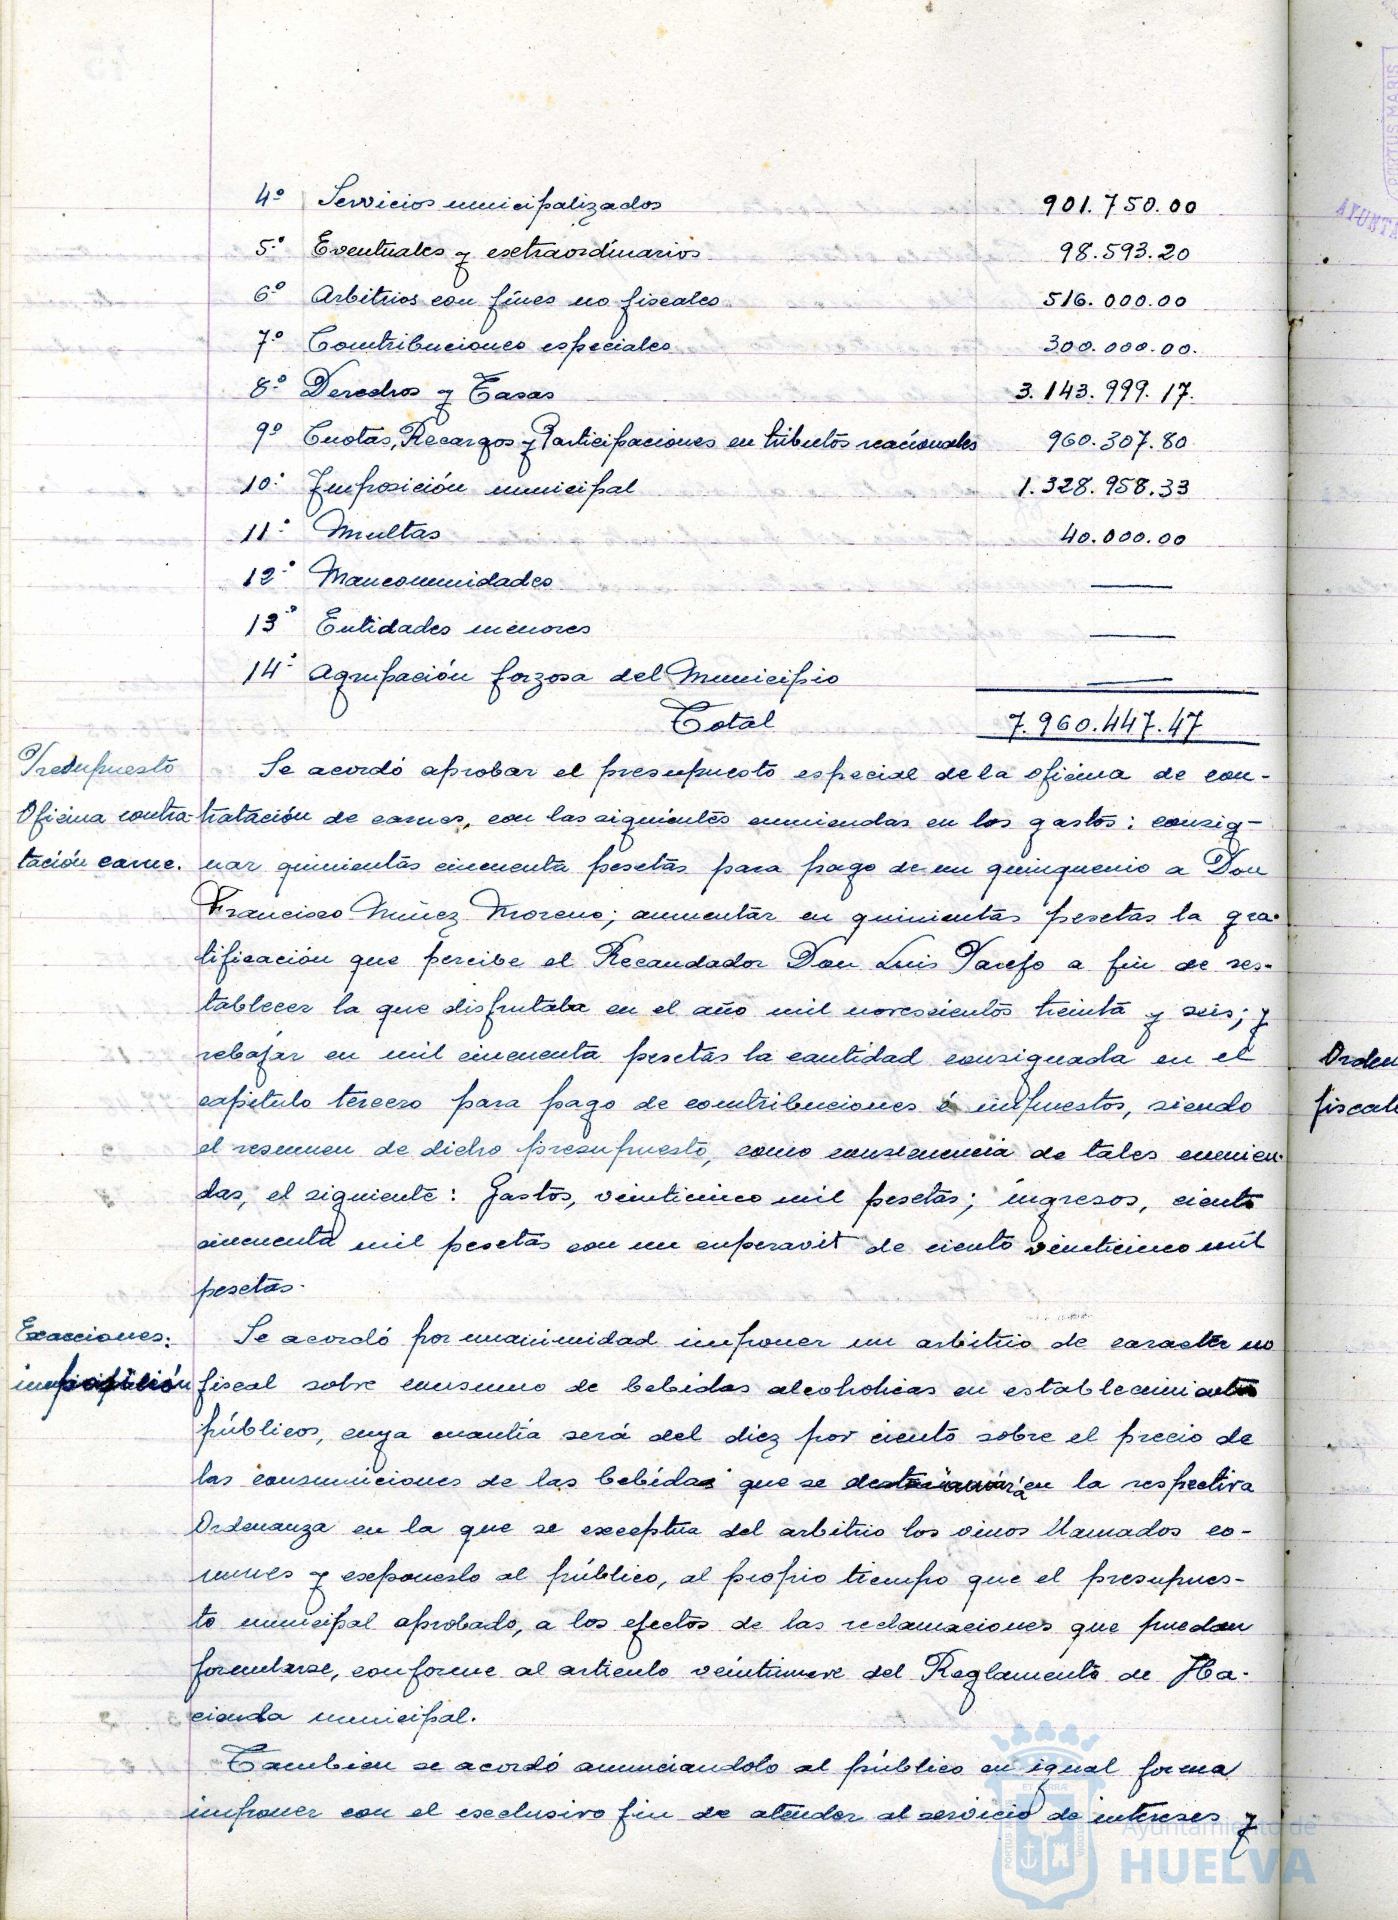 4º Servicios municipalizados 901.750.00
5º Eventuales y extraordinarios 98.593.20
6º Arbitrios con fines no fiscales 516.000.00
7º Contribuciones especiales 300.000.00.
8º Derechos y Tasas 3.143.999.17.
9º Cuotas, Recargos y Participaciones en tributos nacionales 960.307.80
10º Imposición municipal 1.328.958.33
11º Multas 40.000.00
12º Mancomunidades ———
13º Entidades menores ———
14º Agrupación forzosa del Municipio ———
Total 7.960.447.47
Presupuesto Se acordó aprobar el presupuesto especial de la oficina de con-
Oficina contra- tratación de carnes, con las siguientes enmiendas en los gastos: consig-
tación carne. nar quinientas cincuenta pesetas para pago de un quinquenio a Don
Francisco Núñez Moreno; aumentar en quinientas pesetas la gra-
tificación que percibe el Recaudador Don Luis Parejo a fin de res-
tablecer la que disfrutaba en el año mil novescientos treinta y seis; y
rebajar en mil cincuenta pesetas la cantidad consignada en el
capitulo tercero para pago de contribuciones é impuestos, siendo
el resumen de dicho presupuesto, como consecuencia de tales enmien-
das, el siguiente: Gastos, veinticinco mil pesetas; ingresos, ciento
cincuenta mil pesetas con un superavit de ciento veinticinco mil
pesetas.
Exacciones: Se acordó por unanimidad imponer un arbitrio de caracter no
imposición fiscal sobre consumo de bebidas alcoholicas en establecimientos
públicos, cuya cuantía será del diez por ciento sobre el precio de
las consumiciones de las bebidas que se en la respectiva
Ordenanza en la que se exceptua del arbitrio los vinos llamados co-
munes y exponerlo al público, al propio tiempo que el presupues-
to municipal aprobado, a los efectos de las reclamaciones que puedan
formularse, conforme al articulo veintinueve del Reglamento de Ha-
cienda municipal.
Tambien se acordó anunciandolo al público en igual forma
imponer con el exclusivo fin de atender al servicio de intereses y
Orden
fiscal
PORTUS MARIS
AYUNTA
Ayuntamiento de
HUELVA